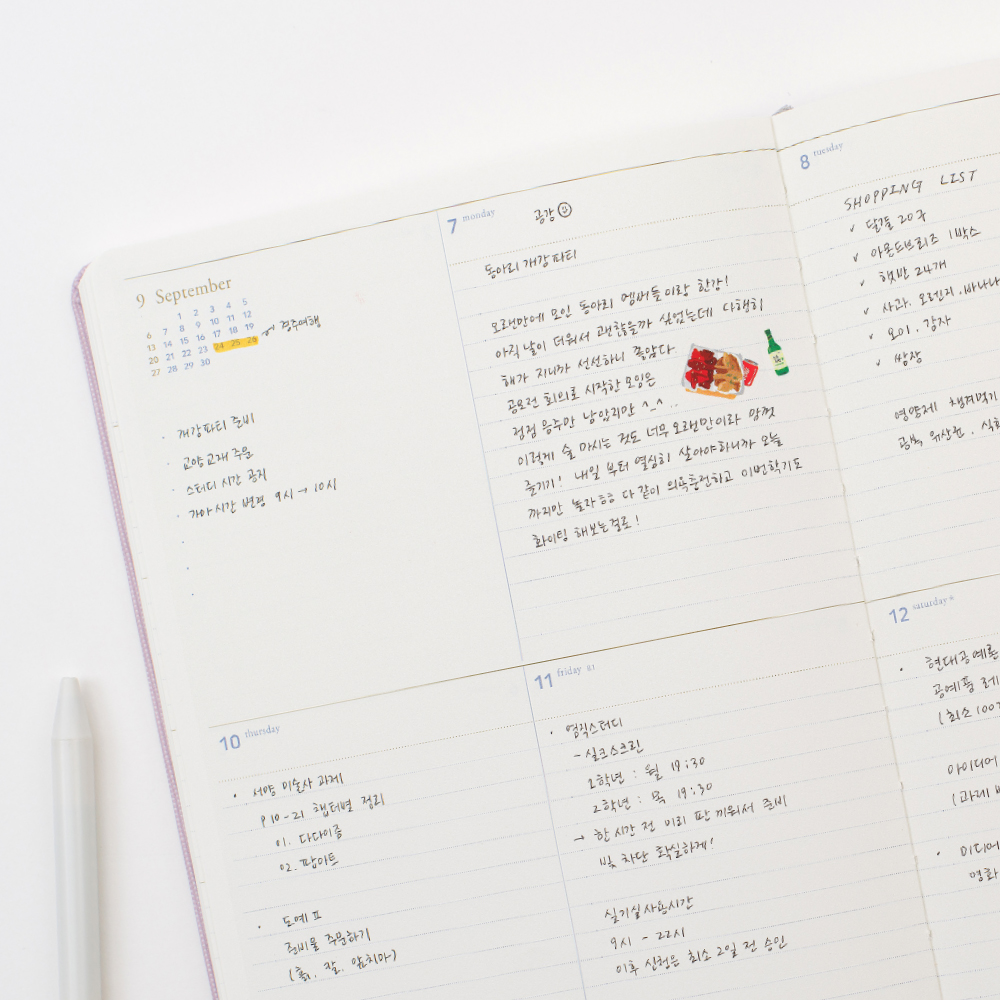 9 September
1 2 3 4 5
6 7 8 9 10 11 12
13 14 15 16 17 18 19
20 21 22 23 24 25 26
27 28 29 30
경주여행
· 개강파티 준비
· 교양교재 주문
· 스터디 시간 공지
· 가야시간 변경 9시 → 10시
7 monday
공강
동아리 개강파티
오랜만에 모인 동아리 멤버들이랑 한강!
아직 날이 더워서 괜찮을까 싶었는데 다행히
해가 지니까 선선하니 좋았다
공모전 회의로 시작한 모임은
점점 음주만 남았지만 ^_^ ..
이렇게 술 마시는 것도 너무 오랜만이라 맘껏
즐기기! 내일 부터 열심히 살아야하니까 오늘
까지만 놀라증 다 같이 의욕충전하고 이번학기도
화이팅 해보는걸로!
8 tuesday
SHOPPING LIST
✓ 달걀 20구
✓ 아몬드브리즈 1박스
✓ 햇반 24개
✓ 사과, 오렌지, 바나나
✓ 오이, 감자
✓ 쌈장
영양제 챙겨먹기
유산균,
10 thursday
· 서양 미술사 과제
P 10-21 챕터별 정리
01. 다다이즘
02. 팝아트
· 도예 II
준비물 주문하기
(흙, 칼, 앞치마)
11 friday
· 염직스터디
- 실크스크린
2학년 : 월 19:30
2학년 : 목 19:30
→ 한시간 전 미리 판 끼워서 준비
빛 차단 확실하게!
실기실사용시간
9시 - 22시
이후 신청은 최소 2일 전 승인
12 saturday
· 현대공예론
공예품 레
(최소 100
아이디어
(과제
· 미디어
명화